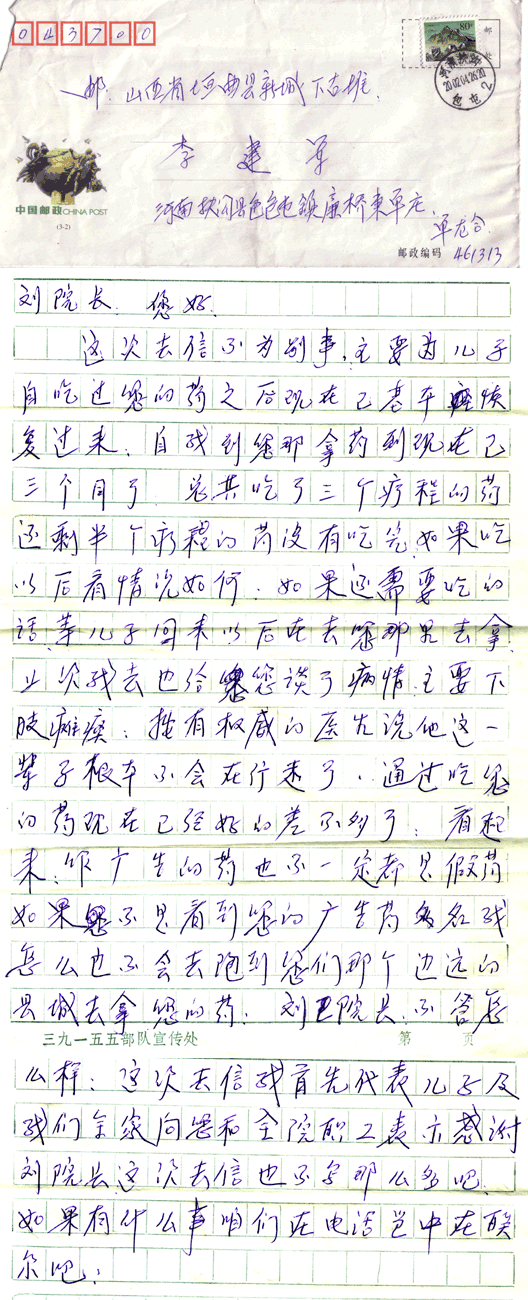 043700
80分
邮
邮：山西省垣曲县新城下古堆
李建军
中国邮政 CHINA POST
(3-2)
河南扶沟县包屯镇廉桥东单庄
单龙合
邮政编码 461313
刘院长：您好
这次去信不为别事，主要为儿子
自吃过您的药之后现在已基本恢
复过来，自我到您那拿药到现在已
三个月了 总共吃了三个疗程的药
还剩半个疗程的药没有吃完，如果吃
以后看情况如何，如果还需要吃的
话，等儿子回来以后在去您那儿去拿
上次我去也给您谈了病情，主要下
肢瘫痪，据有权威的医生说他这一
辈子根本不会在行走了，通过吃您
的药现在已经好的差不多了，看起
来，邹广告的药也不一定都是假药
如果不是看到您的广告药名我
怎么也不会去跑到您们那个边远的
县城去拿您的药，刘院长，不管怎
三九一五五部队宣传处 第 页
么样，这次去信我首先代表儿子及
我们全家向您和全院职工表示感谢
刘院长这次去信也不写那么多吧，
如果有什么事咱们在电话当中在联
系吧，